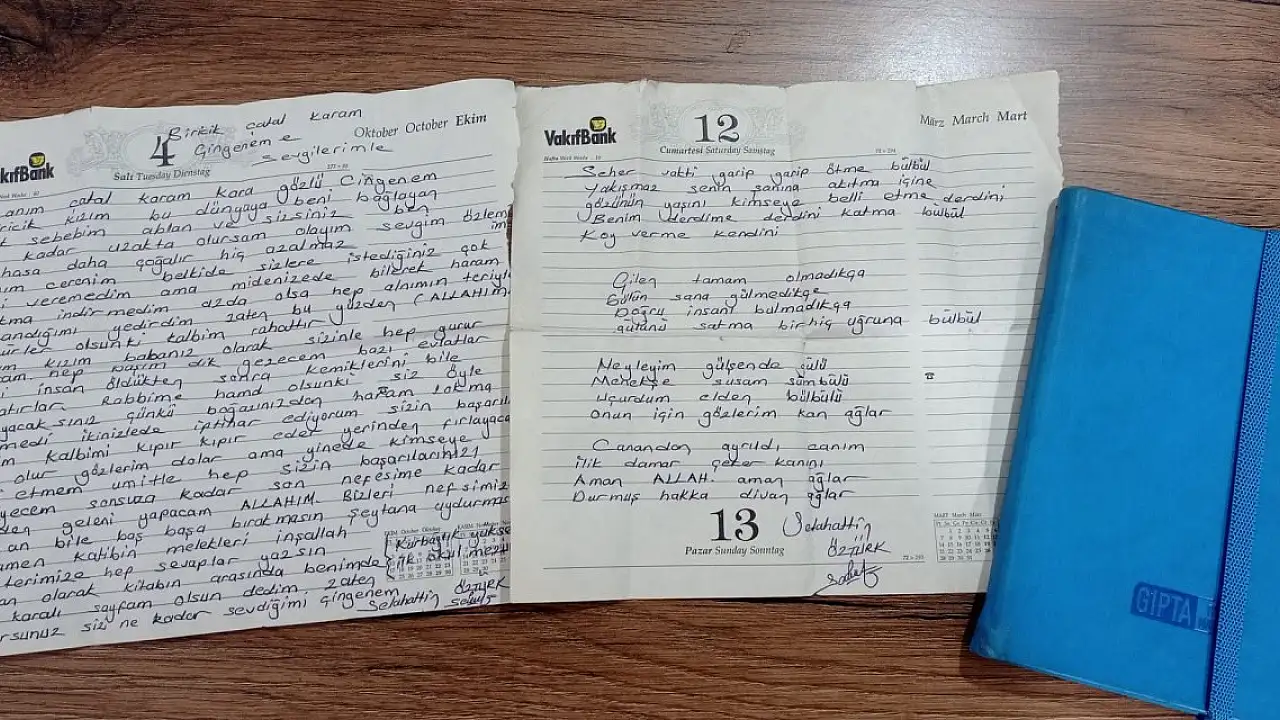 Birkik çatal karam
Çingeneme
sevgilerimle
4
Oktober October Ekim
kıfBank
Salı Tuesday Dienstag
277 - 88
anım çatal karam kara gözlü Çingenem
ricik kızım bu dünyaya beni bağlayan
k sebebim ablan ve sizsiniz ben
kadar uzakta olursam olayım sevgim özlem
hasa daha çoğalır hiç azalmaz
ım cerenim belkide sizlere istediğiniz çok
i veremedim ama midenizede bilerek haram
tma indirmedim azda olsa hep alnımın teriyle
andığımı yedirdim zaten bu yüzden (ALLAHIM
ürler olsunki kalbim rahattır
m kızım babanız olarak sizinle hep gurur
am hep başım dik gezecem bazı evlatlar
i insan öldükten sonra kemiklerini bile
atırlar. Rabbime hamd olsunki siz öyle
yacaksınız çünkü boğazınızdan haram lokma
medi ikinizlede iptihar ediyorum sizin başarıla
m kalbimi kıpır kıpır eder yerinden fırlayaca
olur gözlerim dolar ama yinede kimseye
etmem umitle hep sizin başarılarınızı
yecem sonsuza kadar son nefesime kadar
den geleni yapacam ALLAHIM. Bizleri nefsimiz
an bile baş başa bırakmasın şeytana uydurmas
amen katibin melekleri inşallah
terimize hep sevaplar yazsın
an olarak kitabın arasında benimde
karalı sayfam olsun dedim zaten
rsunuz siz ne kadar sevdiğimi çingenem
Selahattin
ÖZTÜRK
VakıfBank
12
Cumartesi Saturday Samstag
März March Mart
Seher vakti garip garip ötme bülbül
Yakışmaz senin şanına akıtma içine
gözünün yaşını kimseye belli etme derdini
Benim derdime derdini katma bülbül
Koy verme kendini
Çilen tamam olmadıkça
Gülün sana gülmedikçe
Doğru insanı bulmadıkça
gülünü satma bir hiç uğruna bülbül
Neyleyim gülşende gülü
Menekşe susam sümbülü
Uçurdum elden bülbülü
Onun için gözlerim kan ağlar
Canandan ayrıldı canım
İlik damar çeker kanını
Aman ALLAH. aman ağlar
Durmuş hakka divan ağlar
13
Pazar Sunday Sonntag
Selahattin
ÖZTÜRK
MART March März
GIPTA